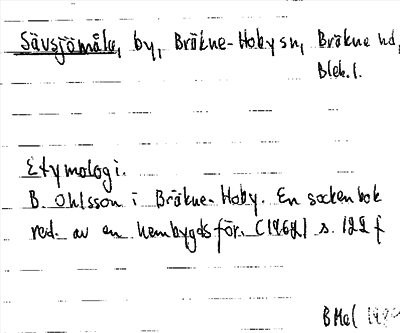 Sävsjömåla, by, Bräkne-Hoby sn, Bräkne hd,
Blek. l.
Etymologi.
B. Ohlsson i Bräkne-Hoby. En sockenbok
red. av en hembygdsför. (1962) s. 122 f